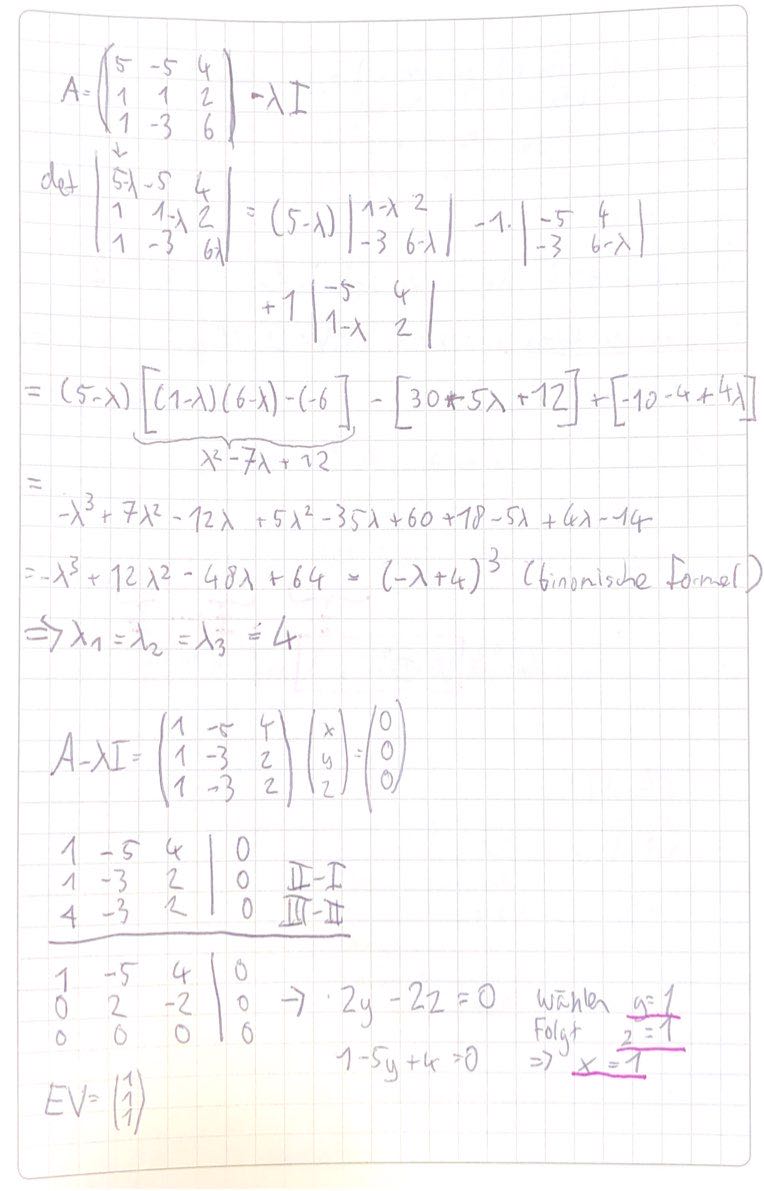 A = (5 -5 4; 1 1 2; 1 -3 6) - λI
↓
det |5-λ -5 4; 1 1-λ 2; 1 -3 6λ| = (5-λ) |1-λ 2; -3 6-λ| - 1· |-5 4; -3 6-λ|
+ 1 |-5 4; 1-λ 2|
= (5-λ) [(1-λ)(6-λ) - (-6] - [30+5λ+12] + [-10-4+4λ]
λ² - 7λ + 12
=
-λ³ + 7λ² - 12λ + 5λ² - 35λ + 60 + 18 - 5λ + 4λ - 14
= -λ³ + 12λ² - 48λ + 64 = (-λ+4)³ (binomische Formel)
=> λ1 = λ2 = λ3 = 4
A - λI = (1 -5 4; 1 -3 2; 1 -3 2) (x; y; z) = (0; 0; 0)
1 -5 4 | 0
1 -3 2 | 0 II-I
1 -3 2 | 0 III-II
1 -5 4 | 0
0 2 -2 | 0 → 2y - 2z = 0 wählen y=1
0 0 0 | 0 Folgt z=1
1-5y+4 = 0 => x=1
EV = (1; 1; 1)